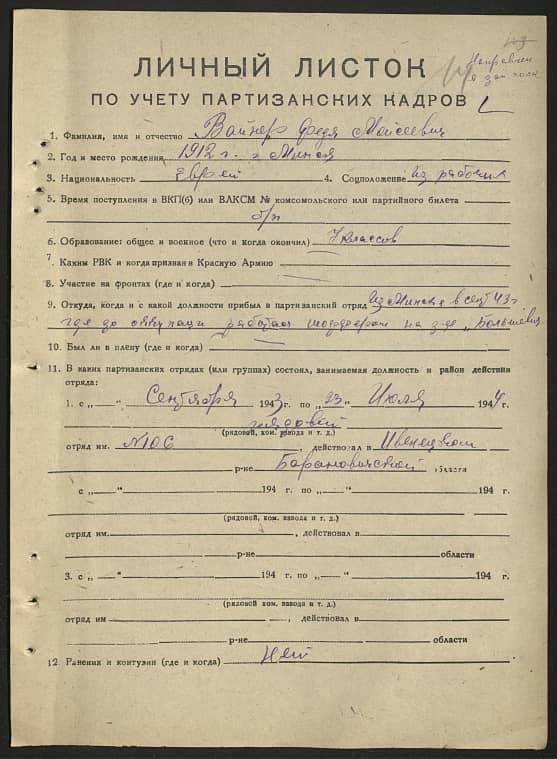 Направлен
в зап. полк
ЛИЧНЫЙ ЛИСТОК
ПО УЧЕТУ ПАРТИЗАНСКИХ КАДРОВ
1. Фамилия, имя и отчество Вайнер Федя Моисеевич
2. Год и место рождения 1912 г. г Минск
3. Национальность Еврей 4. Соцположение Из рабочих
5. Время поступления в ВКП(б) или ВЛКСМ № комсомольского или партийного билета
б/п
6. Образование: общее и военное (что и когда окончил) 7 классов
7. Каким РВК и когда призван в Красную Армию
8. Участие на фронтах (где и когда)
9. Откуда, когда и с какой должности прибыл в партизанский отряд Из Минска в сент 43 г.
где до оккупации работал на з-де „Большевик
10. Был ли в плену (где и когда)
11. В каких партизанских отрядах (или группах) состоял, занимаемая должность и район действия
отряда:
1. с „ “ Сентября 1943 г. по „23 “ Июля 1944 г.
рядовой
(рядовой, ком. взвода и т. д.)
отряд им. №106, действовал в Ивенецком
р-не Барановичской области
с „—“ 194 г. по „—“ 194 г.
(рядовой, ком. взвода и т. д.)
отряд им. , действовал в
р-не области
3. с „ “ 194 г. по „—“ 194 г.
(рядовой ком. взвода и т. д.)
отряд им , действовал в
р-не области
12 Ранения и контузии (где и когда) Нет